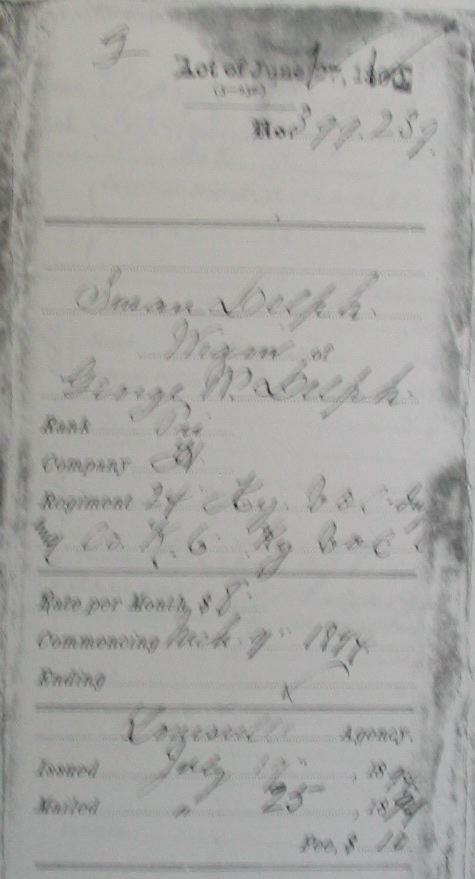 Act of June 27, 1890
(3-436)
No. 399.239
Susan Delph
Widow of
George W. Delph.
Rank Pri
Company H
Regiment 24 Ky. Vol. Inf
Co. K. 6 Ky Vol C
Rate per Month, $8
Commencing Mch. 9" 1894
Ending
Louisville Agency.
Issued July 19", 1894
Mailed " 25, 1894
Fee, $ 10